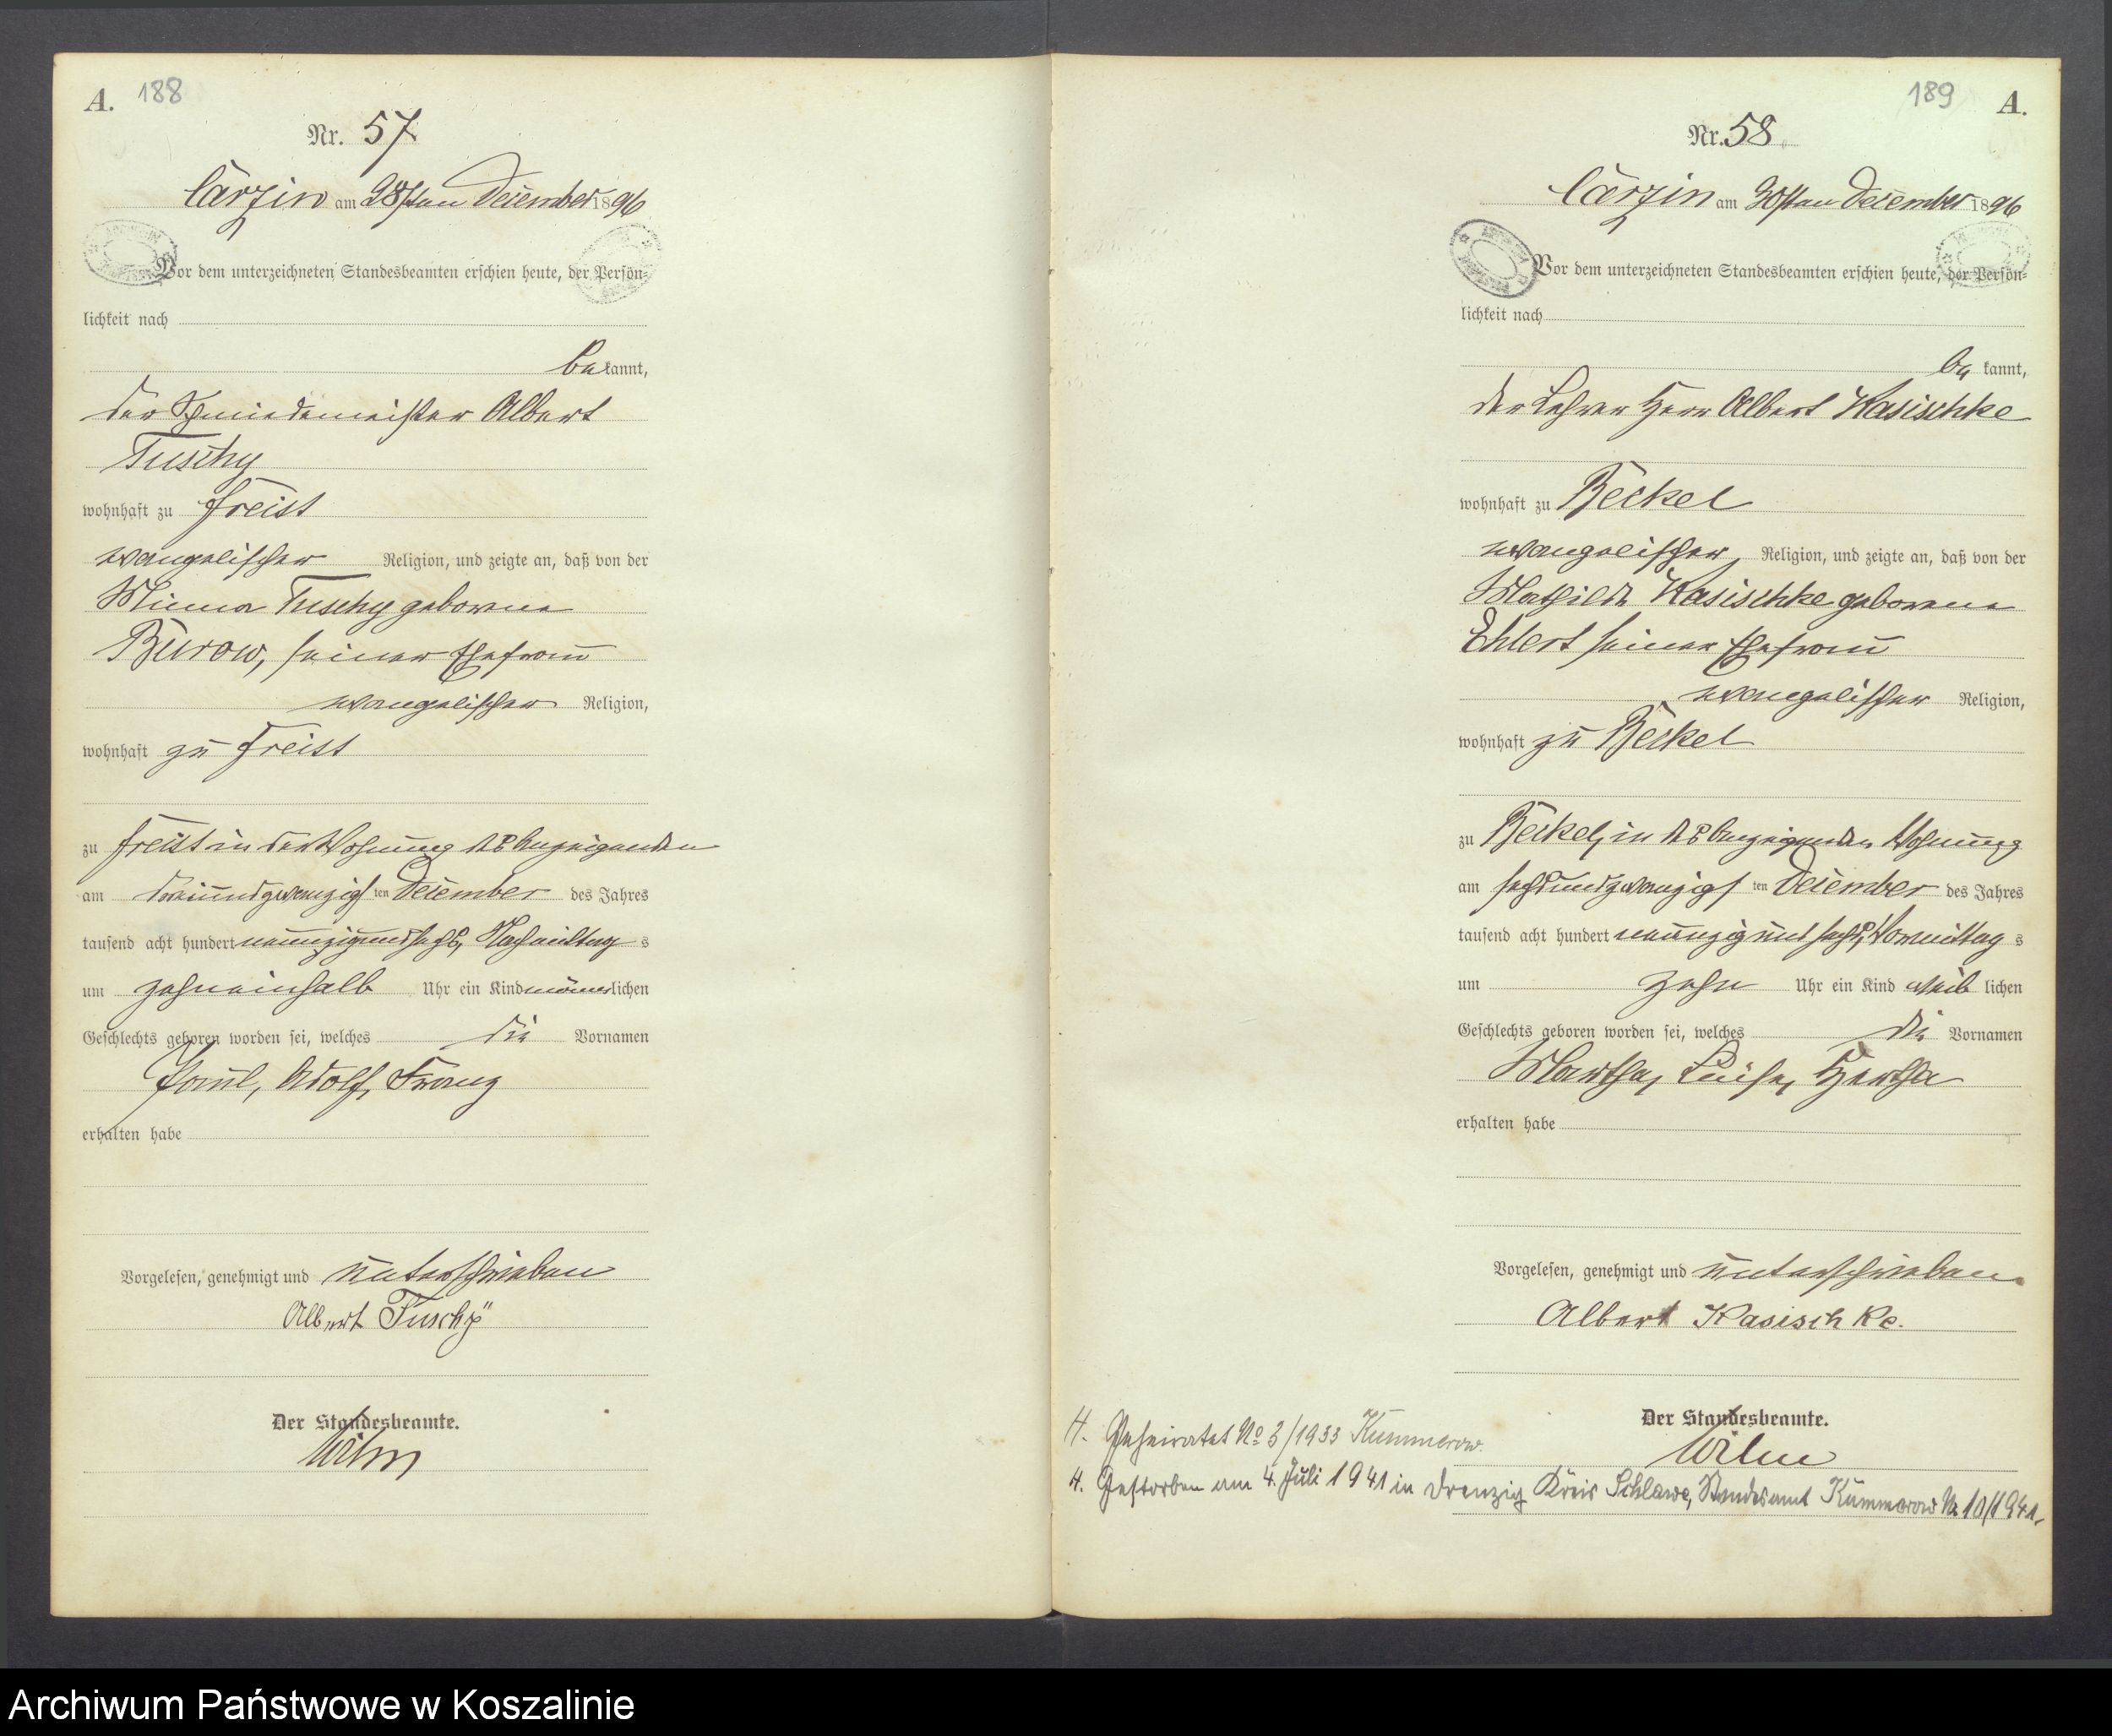 A. 188
Nr. 57
Carzin am 28sten December 1896
Vor dem unterzeichneten Standesbeamten erschien heute, der Persön-
lichkeit nach
bekannt,
der Schmiedemeister Albert
Tuschy
wohnhaft zu Freist
evangelischer Religion, und zeigte an, daß von der
Minna Tuschy geborene
Burow, seiner Ehefrau
evangelischer Religion,
wohnhaft zu Freist
zu Freist in der Wohnung des Anzeigenden
am dreiundzwanzigsten December des Jahres
tausend acht hundert neunzig und sechs, Nachmittags
um zehneinhalb Uhr ein Kind männlichen
Geschlechts geboren worden sei, welches die Vornamen
Paul, Adolf, Franz
erhalten habe
Vorgelesen, genehmigt und unterschrieben
Albert Tuschy
Der Standesbeamte.
Wilm
189 A.
Nr. 58
Carzin am 30sten December 1896
Vor dem unterzeichneten Standesbeamten erschien heute, der Persön-
lichkeit nach
bekannt,
der Lehrer Herr Albert Kasischke
wohnhaft zu Beckel
evangelischer Religion, und zeigte an, daß von der
Mathilde Kasischke geborene
Ehlert seiner Ehefrau
evangelischer Religion,
wohnhaft zu Beckel
zu Beckel, in des Anzeigenden Wohnung
am sechsundzwanzigsten December des Jahres
tausend acht hundert neunzig und sechs, Vormittags
um zehn Uhr ein Kind weiblichen
Geschlechts geboren worden sei, welches die Vornamen
Martha, Luise, Hertha
erhalten habe
Vorgelesen, genehmigt und unterschrieben
Albert Kasischke.
Der Standesbeamte.
Wilm
H. Geheiratet No 3/1933 Kummerow.
H. Gestorben am 4. Juli 1941 in Drenzig Kreis Schlawe, Standesamt Kummerow Nr. 10/1941.
Archiwum Państwowe w Koszalinie